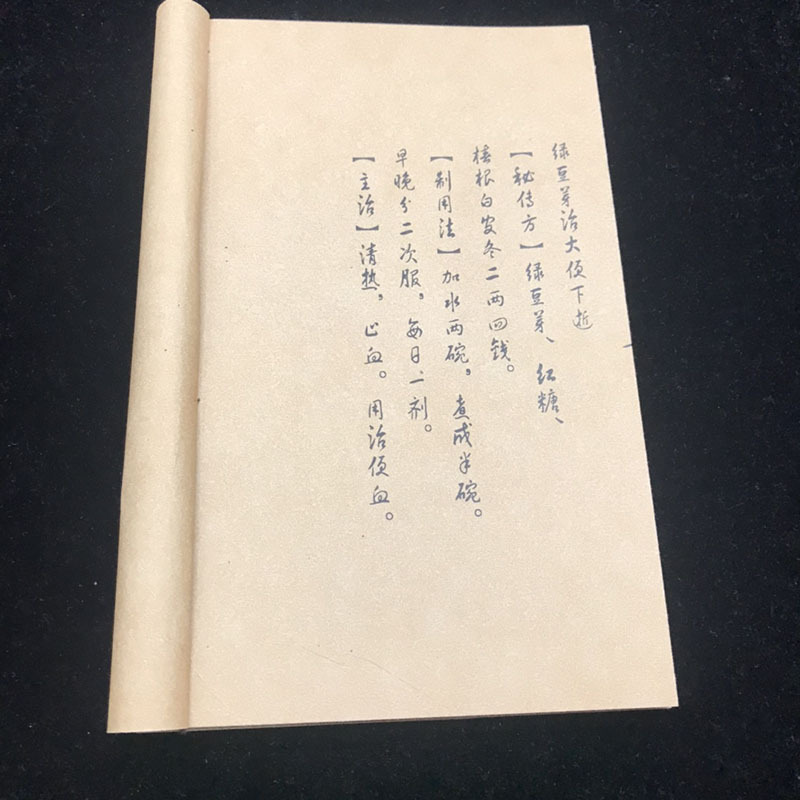 绿豆芽治大便下逝
【秘传方】绿豆芽、红糖、
椿根白皮各二两四钱。
【制用法】加水两碗，煮成半碗。
早晚分二次服，每日一剂。
【主治】清热，止血。用治便血。